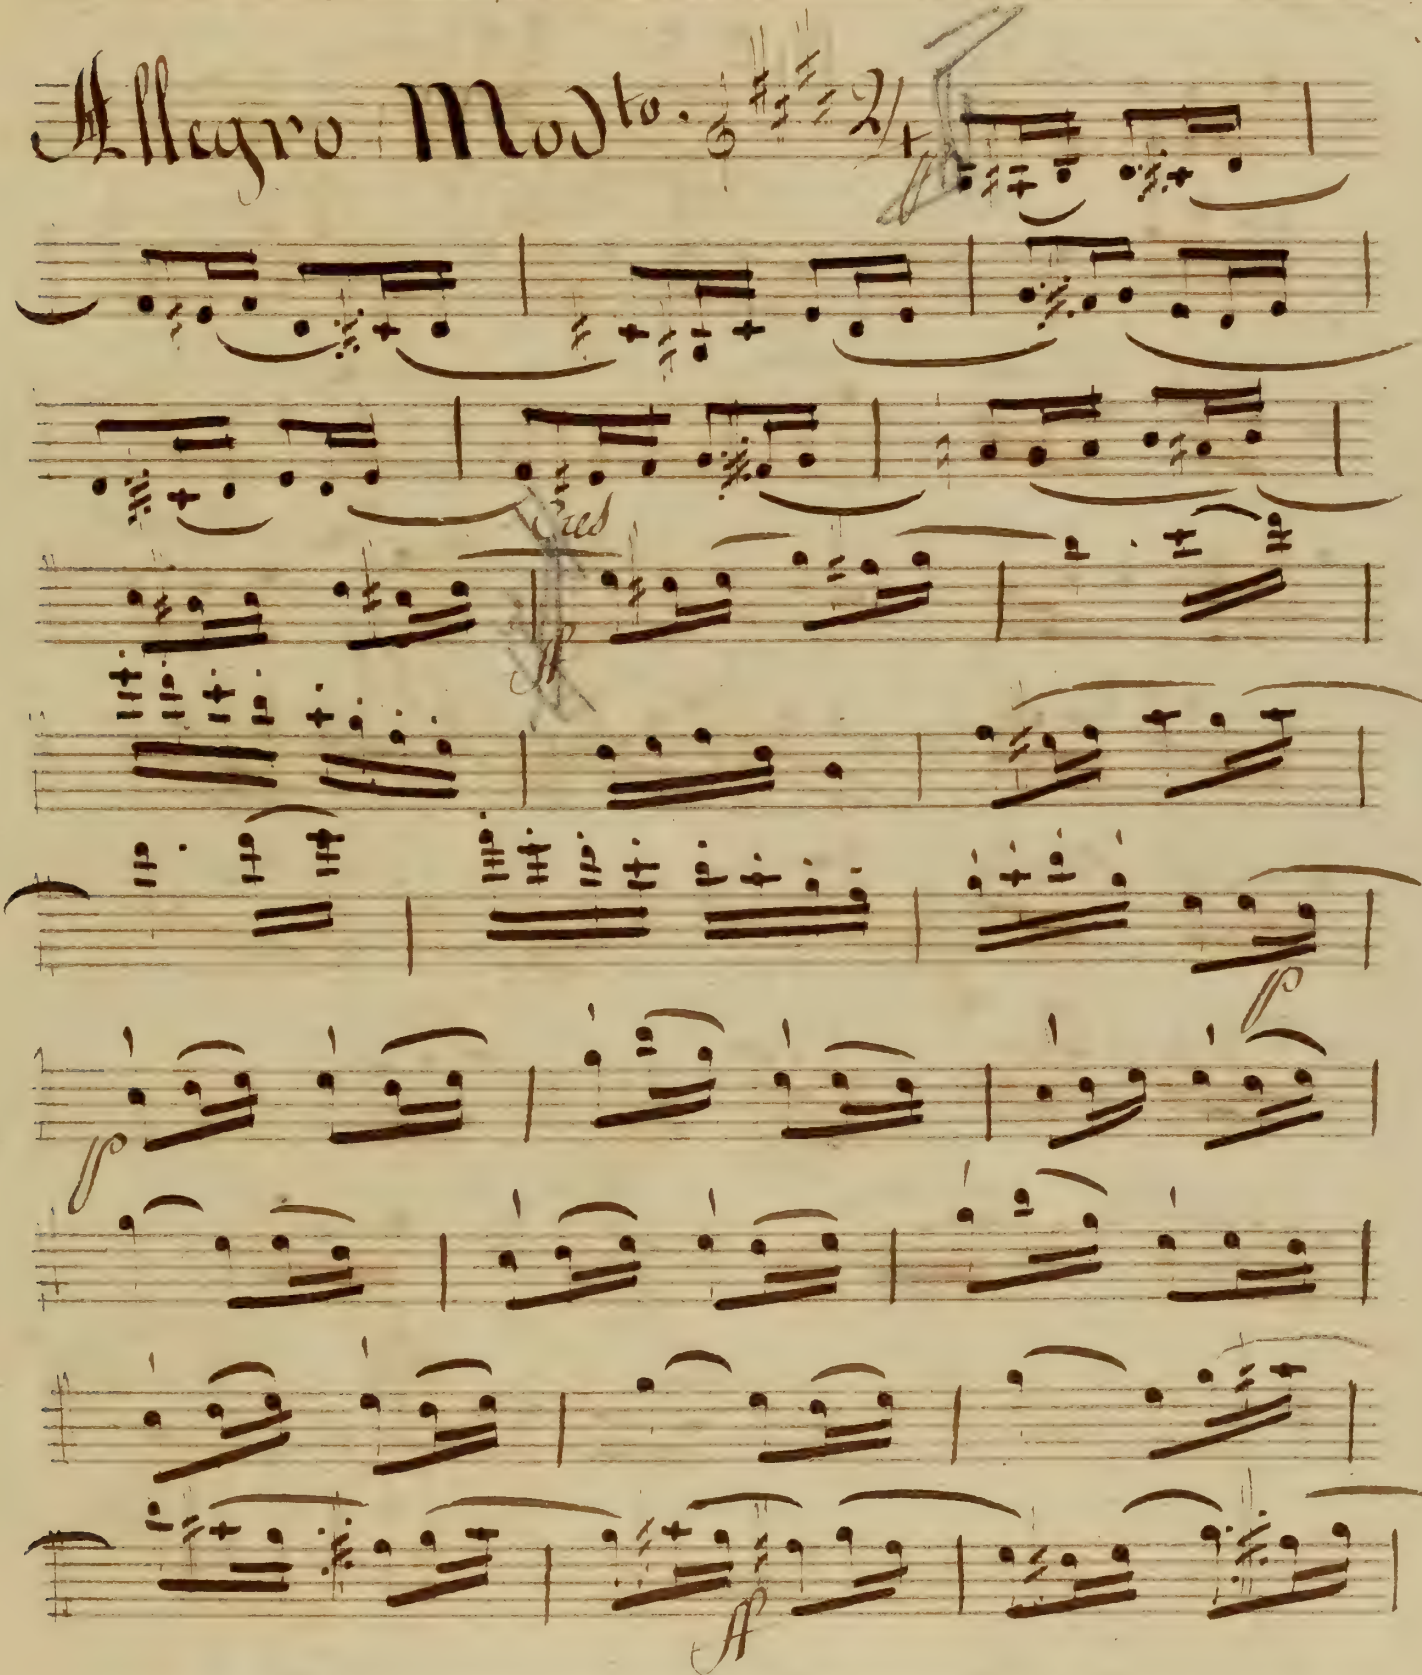 Allegro Modto. 2/4
p
Cres
ff
p
p
ff